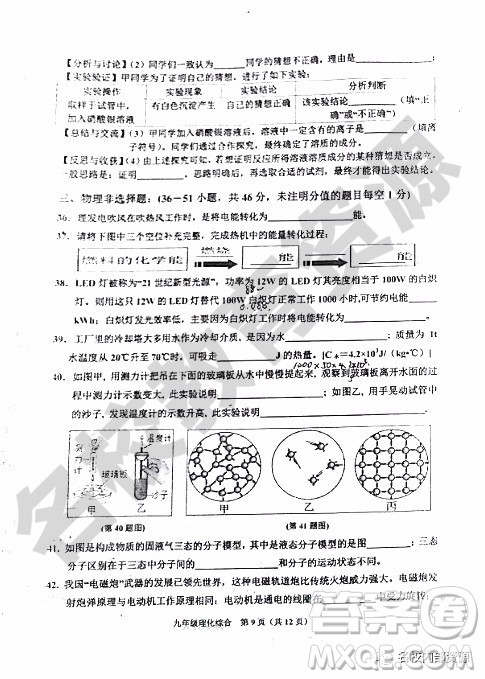 【分析与讨论】(2) 同学们一致认为______同学的猜想不正确。理由是______；
【实验验证】甲同学为了证明自己的猜想，进行了如下实验：
实验操作 实验现象 实验结论 分析判断
取样于试管中， 有白色沉淀产生 自己的猜想正确 该实验结论______(填“正
加入硝酸银溶液 确”或“不正确”)
【总结与交流】(3) 甲同学加入硝酸银溶液后，溶液中一定含有的离子是______(填离
子符号)。同学们又继续进行实验探究。
【反思与收获】(4) 由上述探究可知，若想证明反应后所得溶液成分的某种猜想是否成立，
一般思路是：证明______、______，思路明确后，再选取合适的试剂，最终才能得出实验结论。
三、物理非选择题：(36-51 小题，共 46 分，未注明分值的题目每空 1 分)
36. 理发电吹风在吹热风工作时，是将电能转化为______。
37. 请将下图中三个空位补充完整，完成热机中的能量转化过程：
燃料的化学能 燃烧
38. LED 灯被称为“21 世纪新型光源”，功率为 12W 的 LED 灯其亮度相当于 100W 的白炽
灯。则用这只 12W 的 LED 灯替代 100W 白炽灯正常工作 1000 小时,可节约电能______
kWh；白炽灯发光效率低，主要是因为白炽灯工作时将电能转化为______。
39. 工厂里的冷却塔大多用水作为冷却介质，是因为水______。质量为 1t
水温度从 20℃升至 70℃时，可吸走______J 的热量。[C水=4.2×10³J/（kg•℃）]
40. 如图甲，用测力计把吊在下面的玻璃板从水中慢慢提起来，观察到玻璃板离开水面的过
程测力计示数变大，此实验说明______；如图乙，用手晃动试管中
的沙子，发现温度计的示数升高，此实验说明______。
温度计
玻璃板
甲 乙
甲 乙 丙
(第 40 题图) (第 41 题图)
41. 如图是构成物质的固液气三态的分子模型，其中液态分子模型的是图______；三态
分子区别在于三态中分子的______和分子的运动状态不同。
42. 我国“电磁炮”武器的发展已领先世界，这种电磁轨道炮比传统火炮威力强大。电磁发
射炮弹原理与电动机工作原理相同、电动机是通电的线圈在______中受力而转；
九年级理化综合 第 9 页（共 12 页）